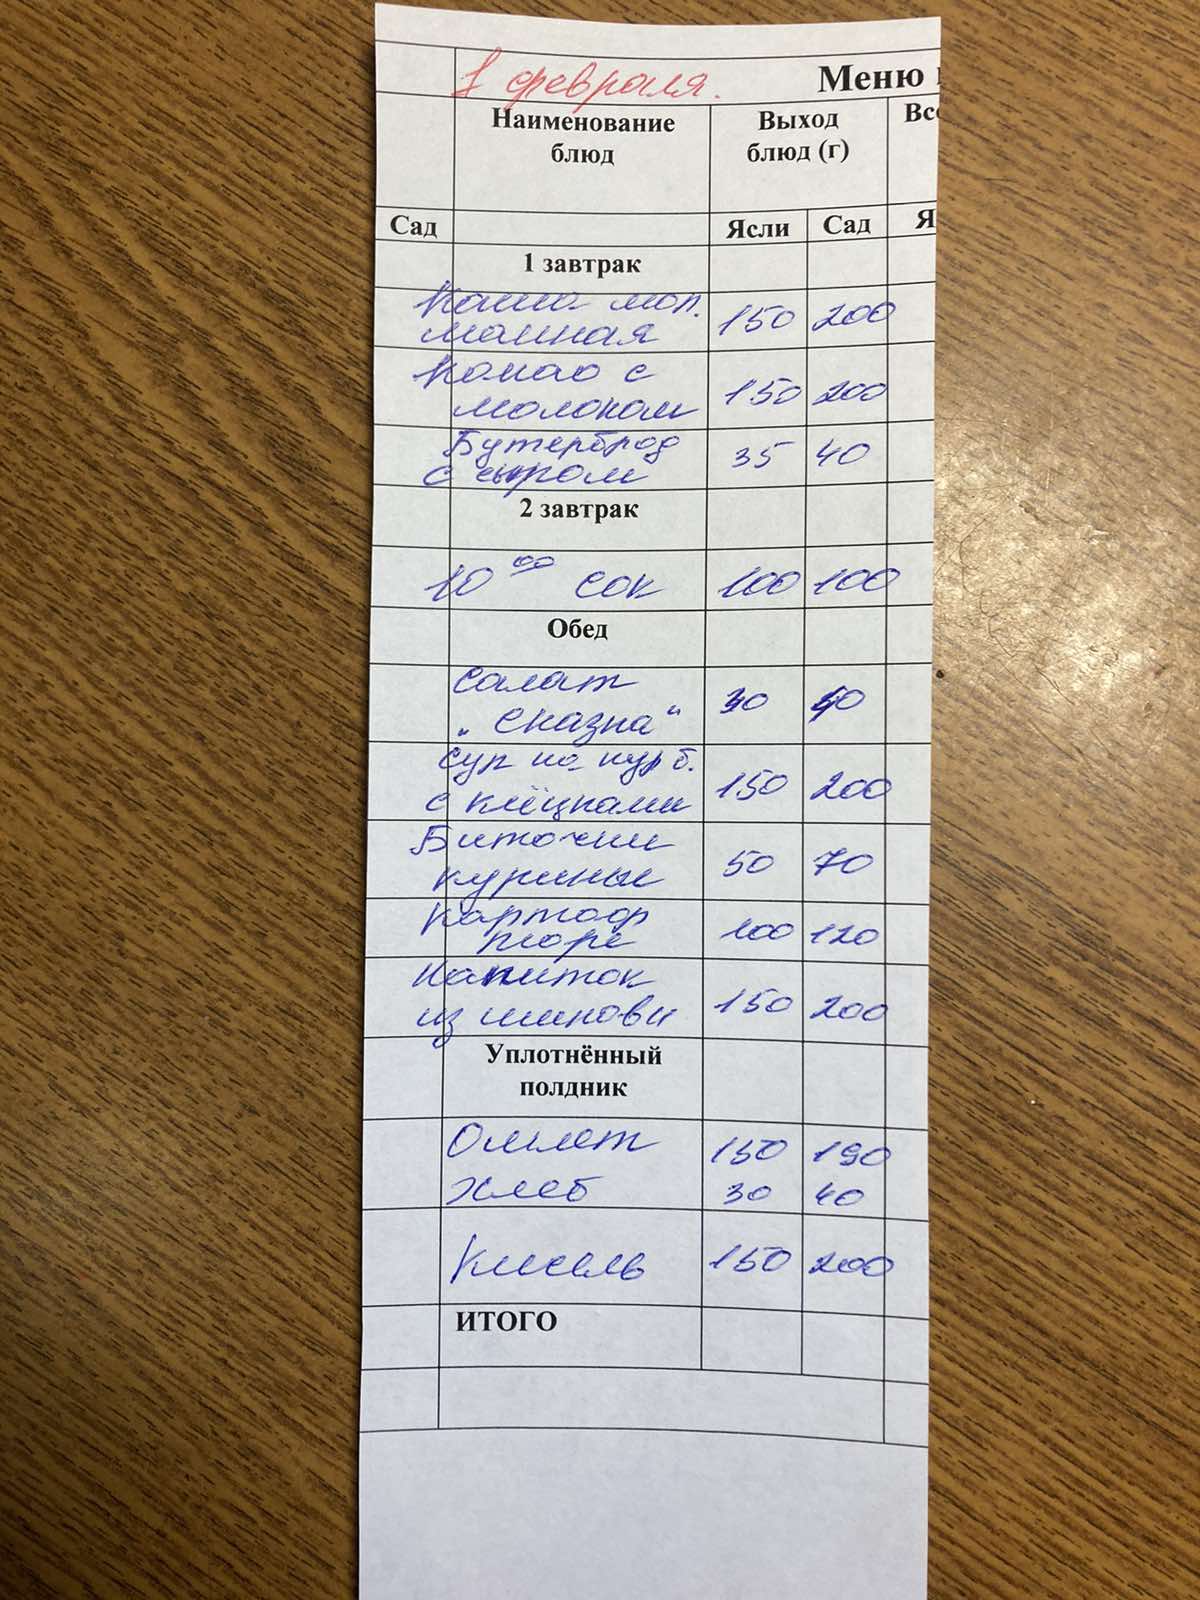 1 февраля. Меню
Наименование блюд Выход блюд (г)
Сад Ясли Сад
1 завтрак
Каша мол.
манная 150 200
Какао с
молоком 150 200
Бутерброд
с сыром 35 40
2 завтрак
10 00 сок 100 100
Обед
Салат
"Сказка" 30
Суп на кур б.
с клёцками 150 200
Биточки
куриные 50 70
Картоф
пюре 100 120
Напиток
из шиповн 150 200
Уплотнённый
полдник
Омлет 150 190
Хлеб 30 40
Кисель 150 200
ИТОГО